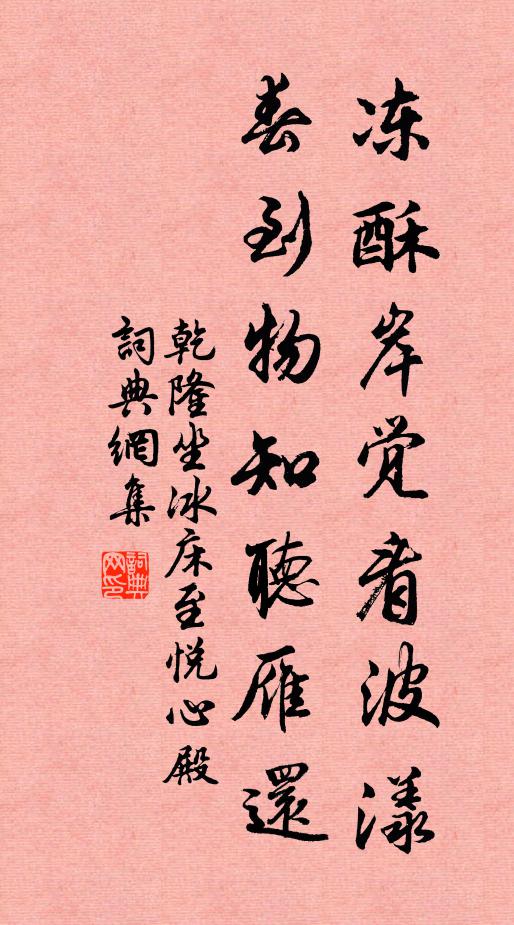 冻酥岸觉看波漾
春到物知聽雁還
乾隆坐冰床至悦心殿
詞典網集
詞典网印